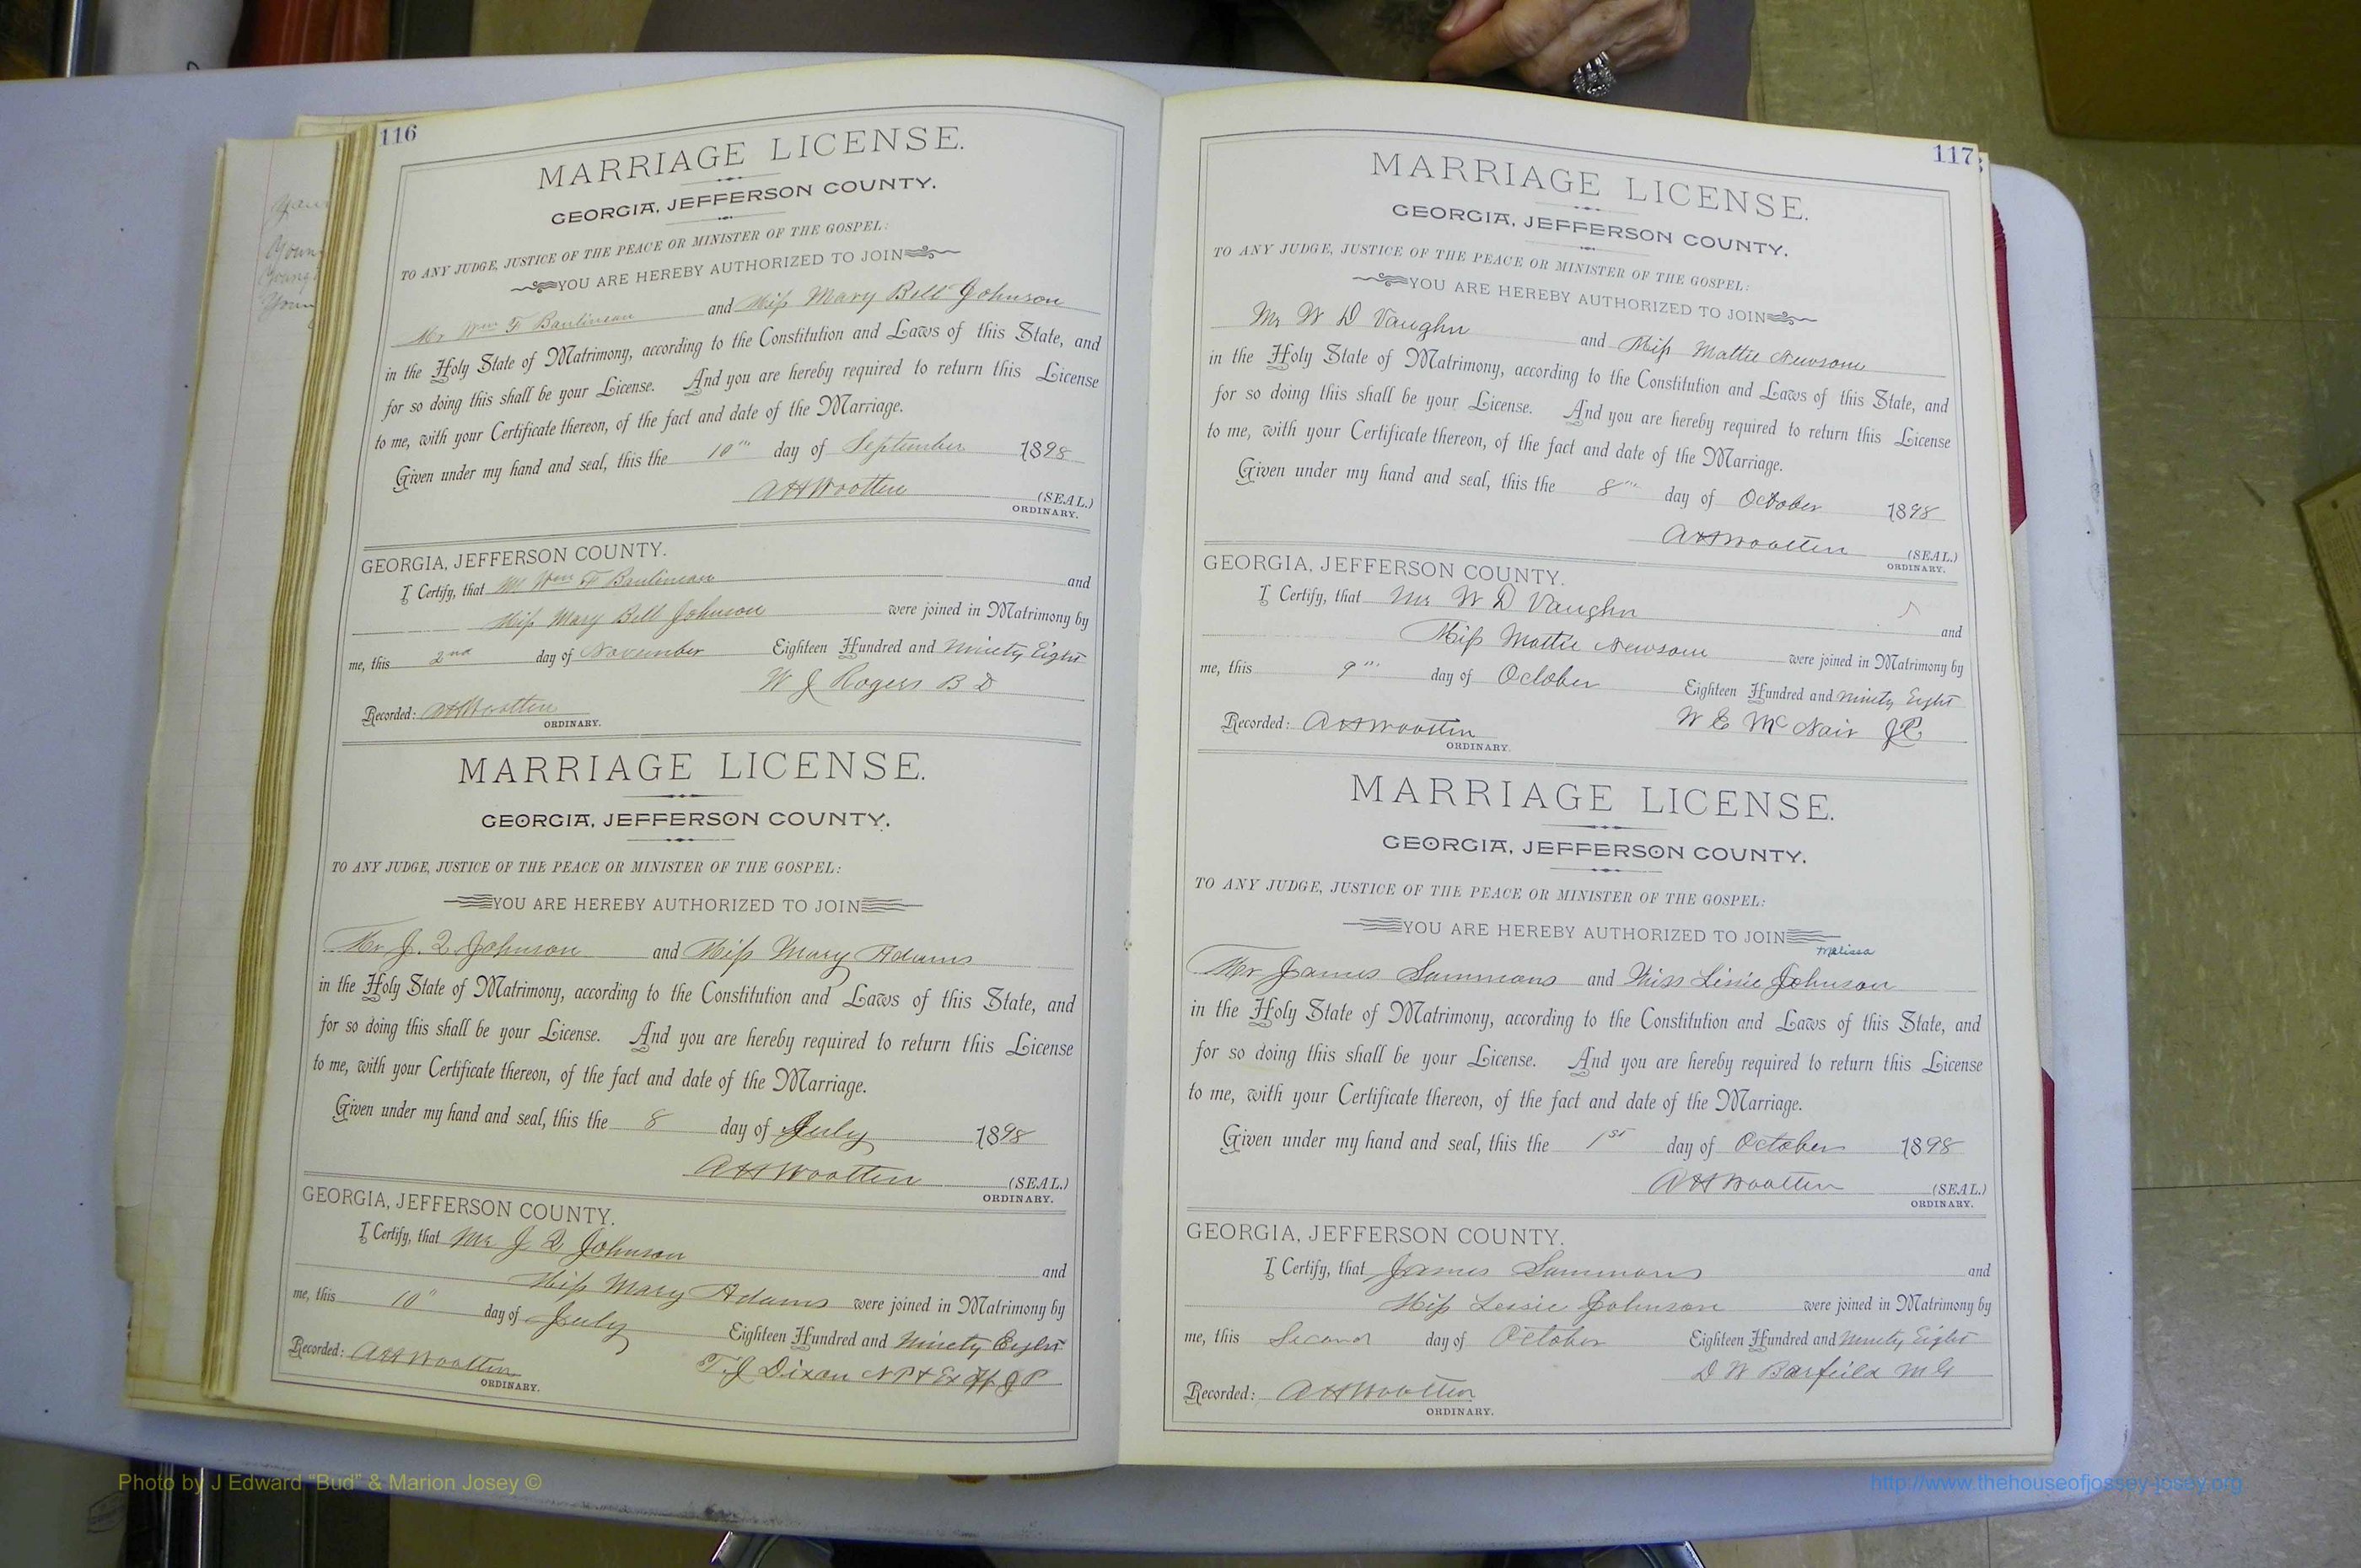 116
MARRIAGE LICENSE.
GEORGIA, JEFFERSON COUNTY.
TO ANY JUDGE, JUSTICE OF THE PEACE OR MINISTER OF THE GOSPEL:
YOU ARE HEREBY AUTHORIZED TO JOIN
Mr Wm F and Miss Mary Bell Johnson
in the Holy State of Matrimony, according to the Constitution and Laws of this State, and
for so doing this shall be your License. And you are hereby required to return this License
to me, with your Certificate thereon, of the fact and date of the Marriage.
Given under my hand and seal, this the 10th day of September 1898
A H Wootten (SEAL.)
ORDINARY.
GEORGIA, JEFFERSON COUNTY.
I Certify, that Mr Wm F and
Miss Mary Bell Johnson were joined in Matrimony by
me, this 2nd day of November Eighteen Hundred and Ninety Eight
W J Rogers B D
Recorded: A H Wootten
ORDINARY.
MARRIAGE LICENSE.
GEORGIA, JEFFERSON COUNTY.
TO ANY JUDGE, JUSTICE OF THE PEACE OR MINISTER OF THE GOSPEL:
YOU ARE HEREBY AUTHORIZED TO JOIN
Mr J. Q. Johnson and Miss Mary Adams
in the Holy State of Matrimony, according to the Constitution and Laws of this State, and
for so doing this shall be your License. And you are hereby required to return this License
to me, with your Certificate thereon, of the fact and date of the Marriage.
Given under my hand and seal, this the 8 day of July 1898
A H Wootten (SEAL.)
ORDINARY.
GEORGIA, JEFFERSON COUNTY.
I Certify, that Mr J Q Johnson and
Miss Mary Adams were joined in Matrimony by
me, this 10" day of July Eighteen Hundred and Ninety Eight
T. J Dixon N P & Ex Off J P
Recorded: A H Wootten
ORDINARY.
117
MARRIAGE LICENSE.
GEORGIA, JEFFERSON COUNTY.
TO ANY JUDGE, JUSTICE OF THE PEACE OR MINISTER OF THE GOSPEL:
YOU ARE HEREBY AUTHORIZED TO JOIN
Mr W D Vaughn and Miss Mattie Newsome
in the Holy State of Matrimony, according to the Constitution and Laws of this State, and
for so doing this shall be your License. And you are hereby required to return this License
to me, with your Certificate thereon, of the fact and date of the Marriage.
Given under my hand and seal, this the 8th day of October 1898
A H Wootten (SEAL.)
ORDINARY.
GEORGIA, JEFFERSON COUNTY.
I Certify, that Mr W D Vaughn and
Miss Mattie Newsome were joined in Matrimony by
me, this 9th day of October Eighteen Hundred and Ninety Eight
W E McNair J P
Recorded: A H Wootten
ORDINARY.
MARRIAGE LICENSE.
GEORGIA, JEFFERSON COUNTY.
TO ANY JUDGE, JUSTICE OF THE PEACE OR MINISTER OF THE GOSPEL:
YOU ARE HEREBY AUTHORIZED TO JOIN
Melissa
Mr James Sammons and Miss Lissie Johnson
in the Holy State of Matrimony, according to the Constitution and Laws of this State, and
for so doing this shall be your License. And you are hereby required to return this License
to me, with your Certificate thereon, of the fact and date of the Marriage.
Given under my hand and seal, this the 1st day of October 1898
A H Wootten (SEAL.)
ORDINARY.
GEORGIA, JEFFERSON COUNTY.
I Certify, that James Sammons and
Miss Lessie Johnson were joined in Matrimony by
me, this Second day of October Eighteen Hundred and Ninety Eight
D W Barfield M G
Recorded: A H Wootten
ORDINARY.
Photo by J Edward “Bud” & Marion Josey ©
http://www.thehouseofjossey-josey.org